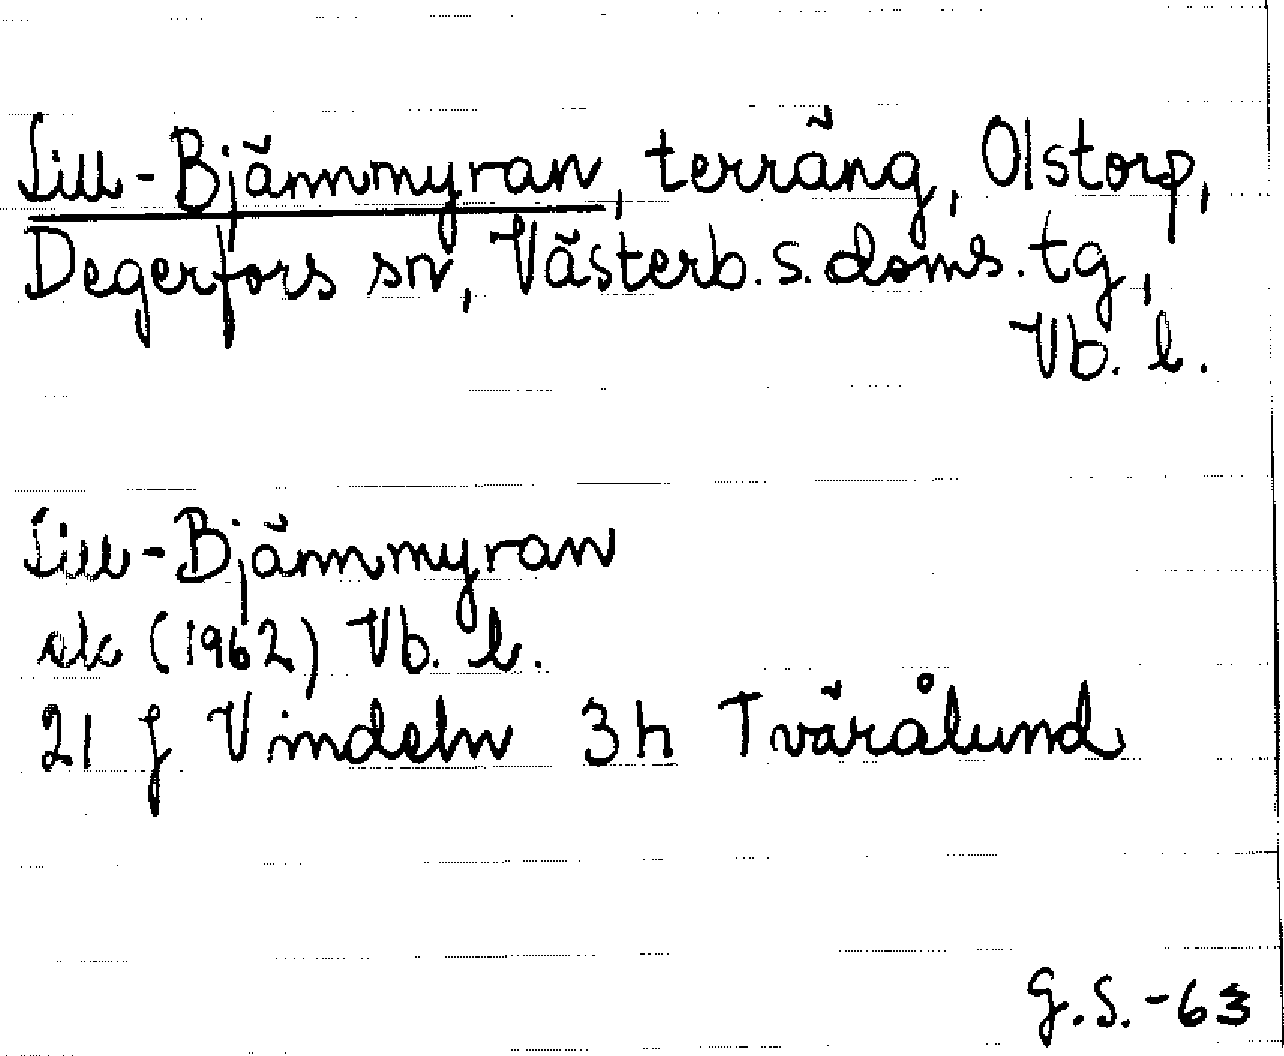 Lill-Bjännmyran, terräng, Olstorp,
Degerfors sn, Västerb. s. doms. tg,
Vb. l.
Lill-Bjännmyran
ek (1962) Vb. l.
21 J Vindeln 3h Tvärålund
G.S.-63